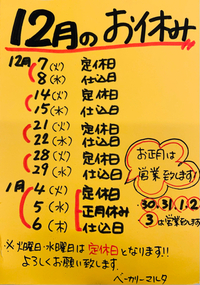 12月のお休み
12月 7(火) 定休日
8(水) 仕込日
14(火) 定休日
15(水) 仕込日
21(火) 定休日
22(水) 仕込日
28(火) 定休日
29(水) 仕込日
1月 4(火) 定休日
5(水) 正月休み
6(木) 仕込日
お正月は
営業致します!
30.31.1.2
3は営業致します
※火曜日・水曜日は定休日となります!!
よろしくお願い致します
ベーカリーマルタ